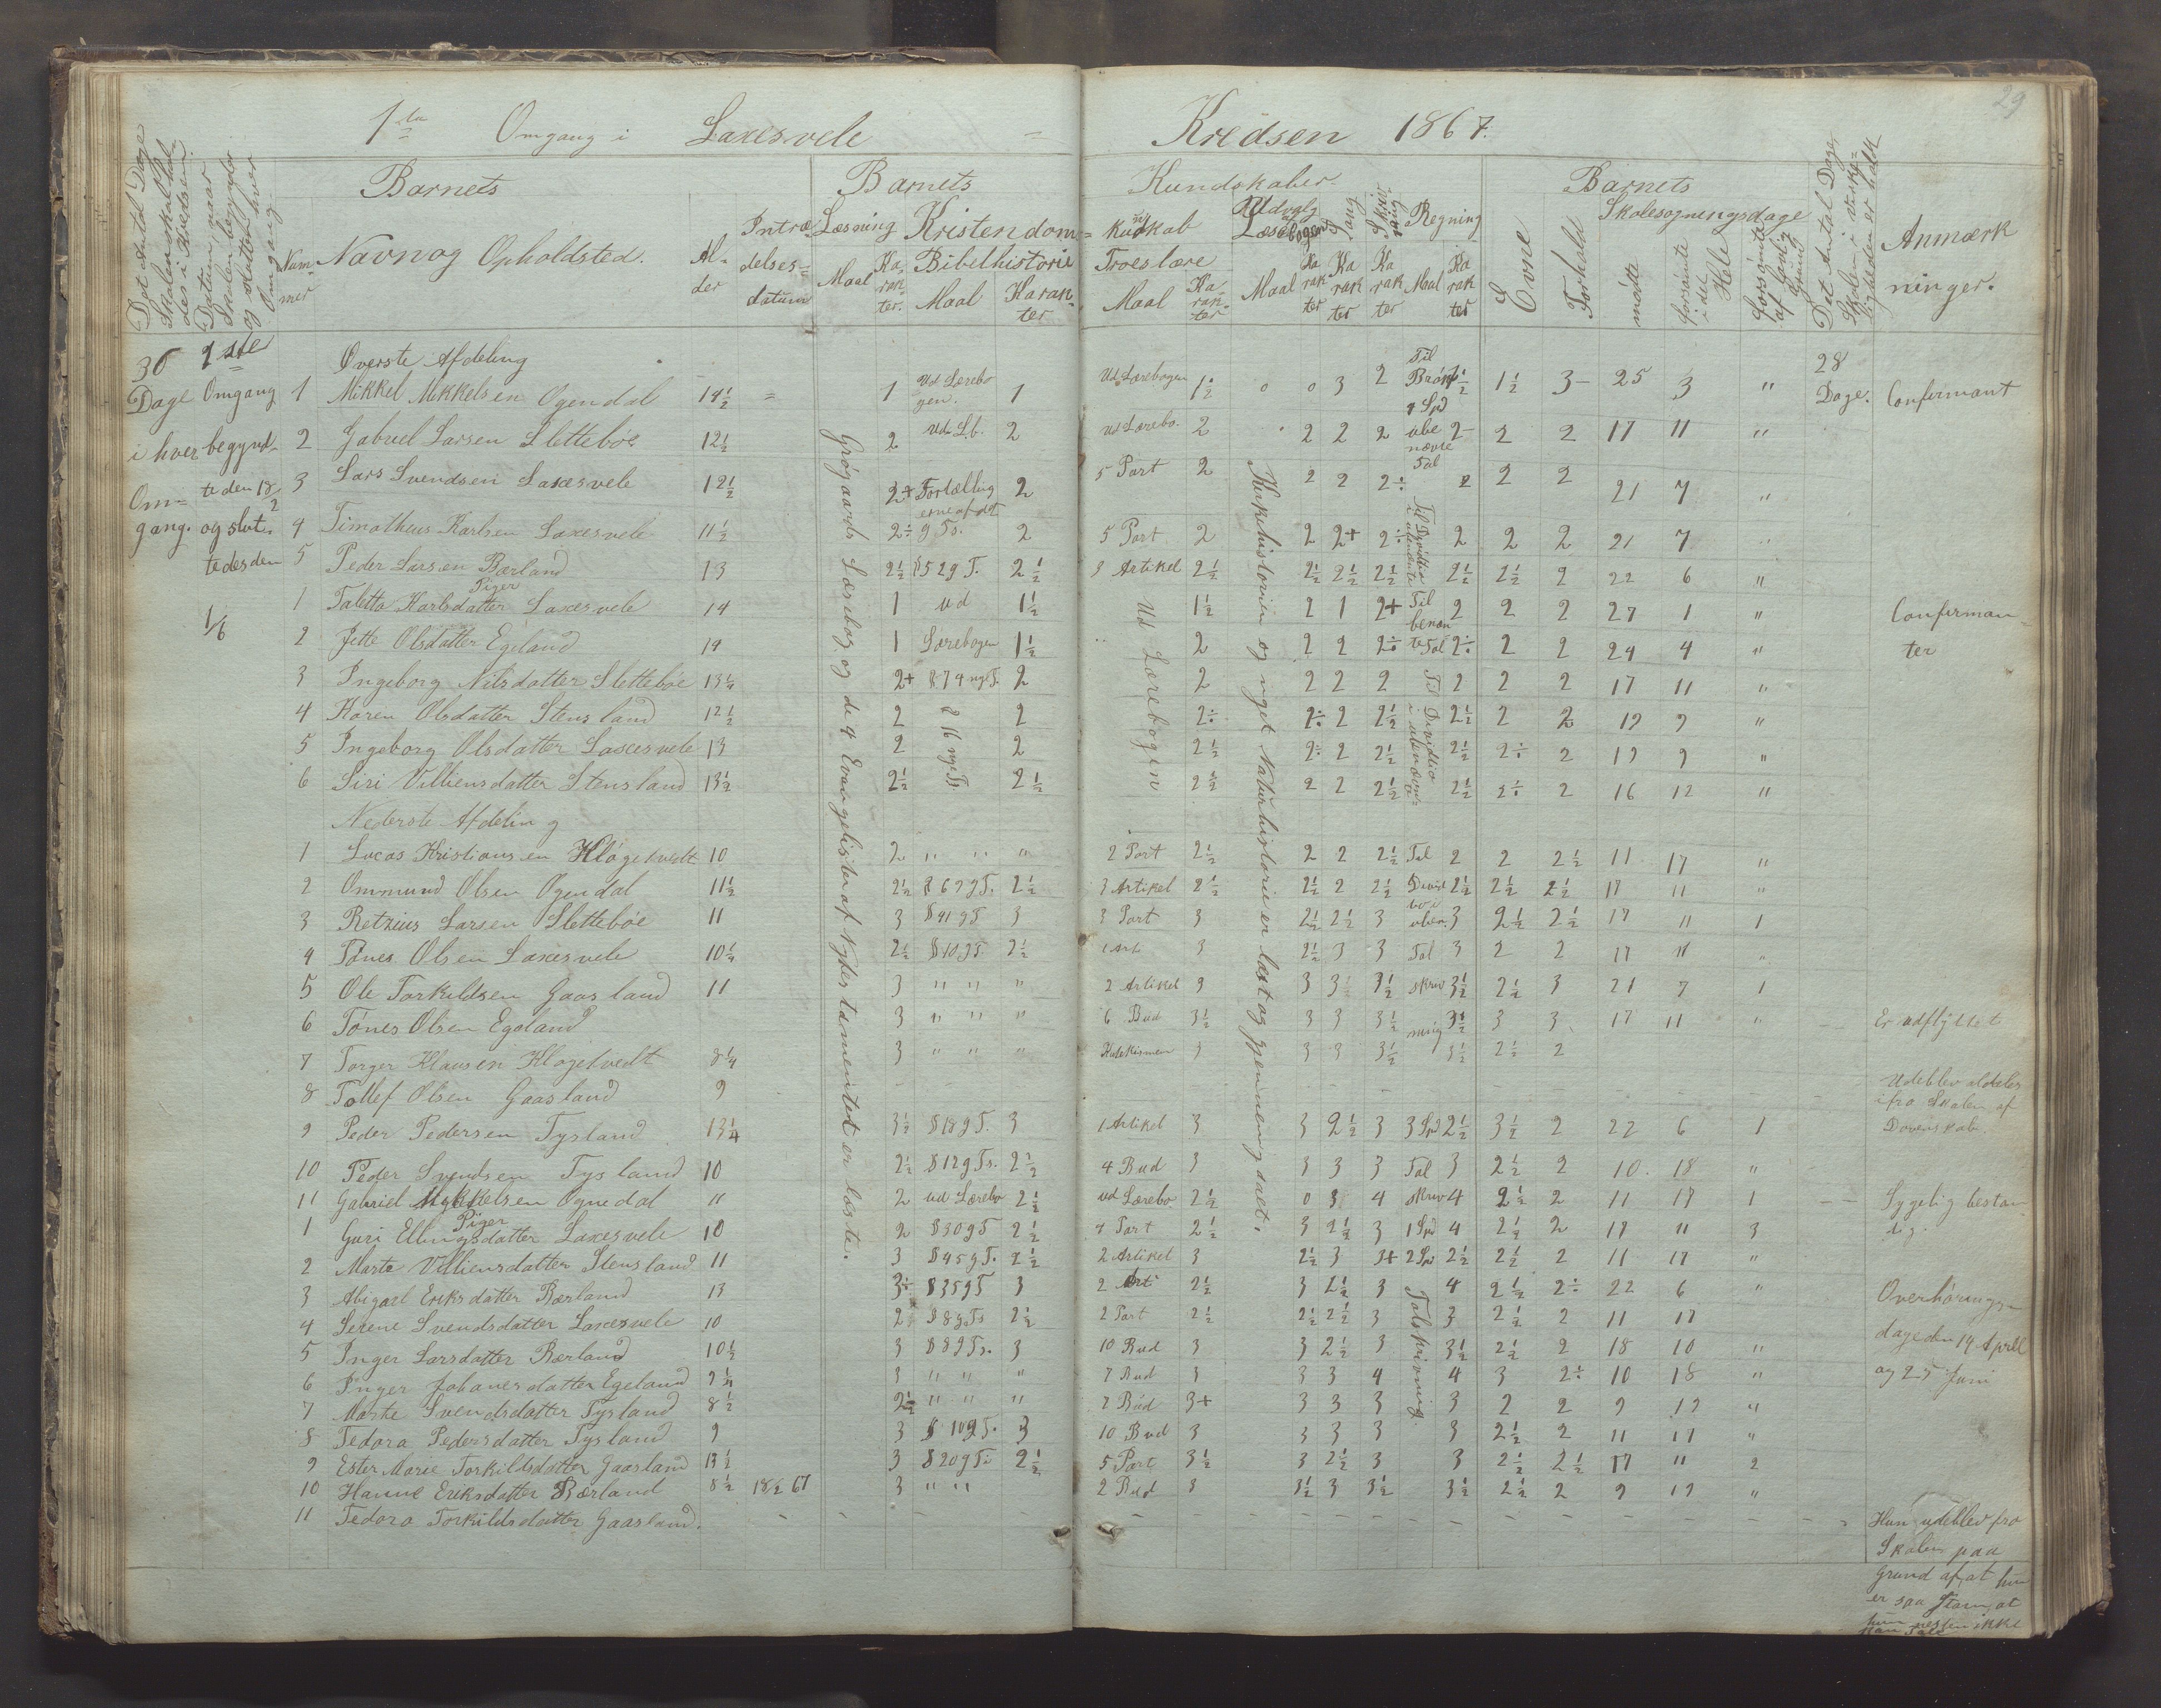 29
1ste Omgang i Laxesvele = Kredsen 1867.
Det Antal Dage Skolen skal holdes i Kredsen.
Datum naar Skolen begynder og sluttet hver Omgang.
Barnets Barnets Kundskaber. Barnets
Nummer Navn og Opholdsted. Alder Intrædelsesdatum
Læsning Maal Karakter.
Kristendoms= kundskab
Bibelhistorie Maal Karakter
Troeslære Maal Karakter
Udvalg Læsebogen Maal Karakter
Sang Karakter
Skrivning Karakter
Regning Maal Karakter
Evne
Forhold
Skolesøgningsdage
mødte
forsømte i det Hele
forsømte af lovlig Grund
Det Antal Dage Skolen i Virkeligheden er holdt
Anmærkninger.
36 Dage i hver Omgang.
1ste Omgang begyndte den 18/2 og sluttedes den 1/6
28 Dage.
Øverste Afdeling
1 Mikkel Mikkelsen Ogendal 14½ = 1 Ud Lærebogen. 1 Ud Lærebogen 1½ 0 0 3 2 Til Brøk 1½ 3- 25 3 " Confirmant
2 Gabriel Larsen Slettebøe 12½ 2 ud Lb. 2 ud Lærebo. 2 2 2 2 4 Spd ubenævnte Tal 2- 2 2 17 11 "
3 Lars Svendsen Laxesvele 12½ 2+ Fortællingerne af det 2 5 Part 2 2 2 2÷ 2 2 2 21 7 "
4 Timotheus Karlsen Laxesvele 11½ 2÷ g Ts. 2 5 Part 2 2 2+ 2÷ 2 2 2 21 7 "
5 Peder Larsen Bærland 13 2½ §52 g T. 2½ 3 Artikel 2½ 2½ 2½ 2½ 2½ 2½ 2 22 6 "
Piger
1 Taletta Karlsdatter Laxesvele 14 1 ud 1½ 1½ 2 1 2+ Til benævnte Tal 2 2 2 27 1 " Confirmanter
2 Jette Olsdatter Egeland 14 1 Lærebogen 1½ 2 2 2 2÷ 2÷ 2 2 24 4 "
3 Ingeborg Nilsdatter Slettebøe 13¼ 2+ §74 nye T. 2 2 2 2 2 2 2 2 17 11 "
4 Karen Olsdatter Stensland 12½ 2 § 16 nye Ts 2 2÷ 2÷ 2 2½ 2½ 2 2 19 9 "
5 Ingeborg Olsdatter Laxesvele 13 2 2 2½ 2÷ 2 2½ 2½ 2÷ 2 19 9 "
6 Siri Villiensdatter Stensland 13½ 2½ 2½ 2½ 2 2 2½ 2½ 2÷ 2 16 12 "
Grøgaards Læsebog og de 4 Evangelister af Nytestamentet er læste.
Ud Lærebogen
Kirkehistorien og noget Naturhistorie er læst og gjennemgaaet.
Nederste Afdeling
1 Lucas Kristiansen Kløgetvedt 10 2 " " " 2 Part 2½ 2 2 2½ Tal 2 2 2½ 11 17 "
2 Ommund Olsen Ogendal 11½ 2½ §62 g T. 2½ 3 Artikel 2½ 2½ 2 2½ 2½ 2½ 2½ 17 11 "
3 Retzius Larsen Slettebøe 11 3 §41 g T 3 3 Part 3 2½ 2½ 3 3 2½ 2½ 17 11 1
4 Tønes Olsen Laxesvele 10¼ 2½ §10 g T. 2½ 3 2½ 3 3 Tal 3 2 2 17 11 "
5 Ole Torkildsen Gaasland 11 3 " " " 2 Artikel 3 3 3½ 3½ skriv 3½ 2½ 3 21 7 1
6 Tønes Olsen Egeland 3 " " " 6 Bud 3½ 3 3 3½ ning 3½ 3 3 17 11 " Er udflyttet
7 Torger Klausen Kløgetvedt 8¼ 3 " " " 3 3 3 3½ 3½ 2½ 2
8 Tollef Olsen Gaasland 9 - - Udeblev aldeles ifra Skolen af Dovenskab.
9 Peder Pedersen Tysland 13¼ 3½ §18 g T. 3 1 Artikel 3 3 2½ 3 3 Spd 2½ 3½ 2 22 6 1
10 Peder Svendsen Tysland 10 2½ §12 g Ts. 2½ 4 Bud 3 3 3 3 Tal 3 2½ 2 10 18 "
11 Gabriel Mykkelsen Ognedal " 2 ud Lærebo 2½ ud Lærebo 2½ 0 3 4 skriv 4 2½ 2 11 17 1 Sygelig bestandig.
Piger
1 Guri Ellingsdatter Laxesvele 10 2 §30 g T 2½ 4 Part 2½ 3 2½ 3 1 Spd 4 2½ 2 17 11 3
2 Marte Villiensdatter Stensland 11 3 §45 g T. 2½ 2 Artikel 3 2½ 3 3+ 2 Spd 2½ 2½ 2 11 17 "
3 Abigael Eriksdatter Bærland 13 3÷ §35 g T 3 2 Arti 2½ 3 2½ 3 4 2½ 2÷ 22 6 "
4 Serene Svendsdatter Laxesvele 10 2 §8 g Ts 2½ 2 Part 2½ 2½ 2½ 3 3 2½ 2 11 17
5 Inger Larsdatter Bærland 10½ 3 §8 g Ts. 3 10 Bud 3 3 2½ 3 3½ 2½ 2 18 10 "
6 Inger Johanesdatter Egeland 9¼ 3 " " " 7 Bud 3 3 3 4 4 3 2÷ 10 18 "
7 Marte Svendsdatter Tysland 8½ 2½ " " " 7 Bud 3+ 3 3 3 3 2 2 9 19 "
8 Tedora Pedersdatter Tysland 9 3 § 10 g T. 3 10 Bud 3 3 3 3 3 2½ 2 11 17 "
9 Ester Marie Torkildsdatter Gaasland 13½ 3 §20 g Ts 2½ 5 Part 3½ 3 2½ 3 3 2½ 2½ 17 11 2
10 Hanne Eriksdatter Bærland 8½ 18/2 67 3 " " 2 Bud 3 3½ 3 3½ 3½ 2½ 2 9 19 "
11 Tedora Torkildsdatter Gaasland.
Talskrivning
Overhøringsdage den 14 April og 25 Juni
Hun udeblev fra Skolen paa Grund af, at hun er saa Stam, at hun næsten ikke kan Tale